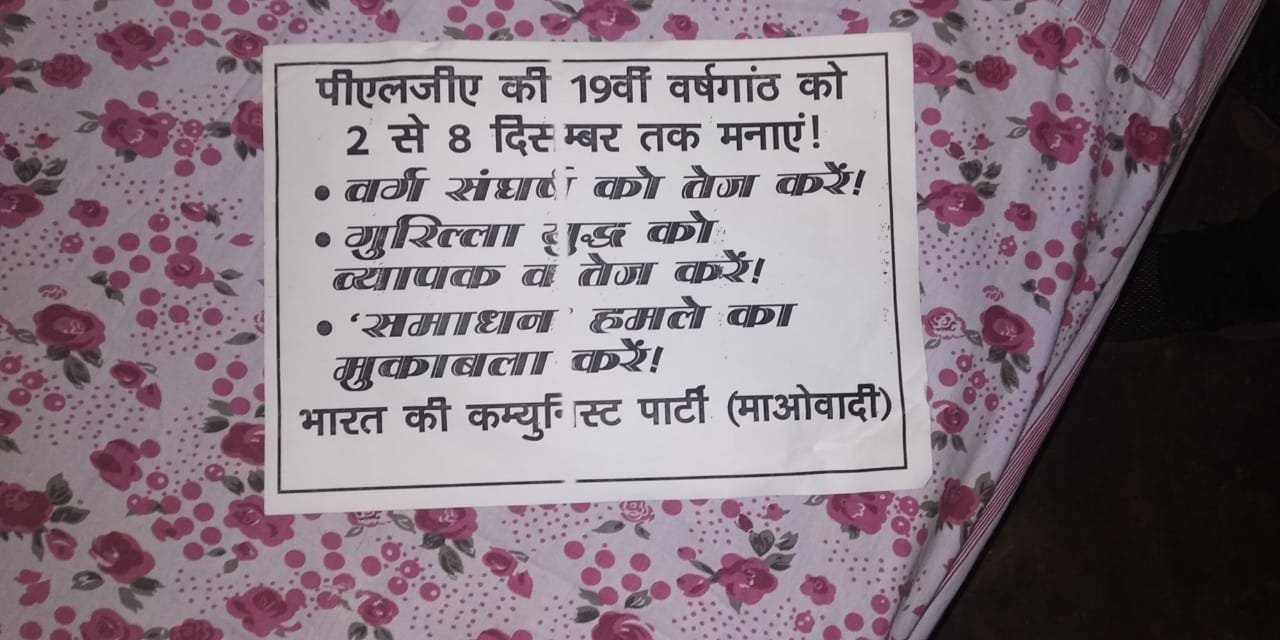 पीएलजीए की 19वीं वर्षगांठ को
2 से 8 दिसम्बर तक मनाएं!
• वर्ग संघर्ष को तेज करें!
• गुरिल्ला युद्ध को
व्यापक व तेज करें!
• ‘समाधन’ हमले का
मुकाबला करें!
भारत की कम्युनिस्ट पार्टी (माओवादी)